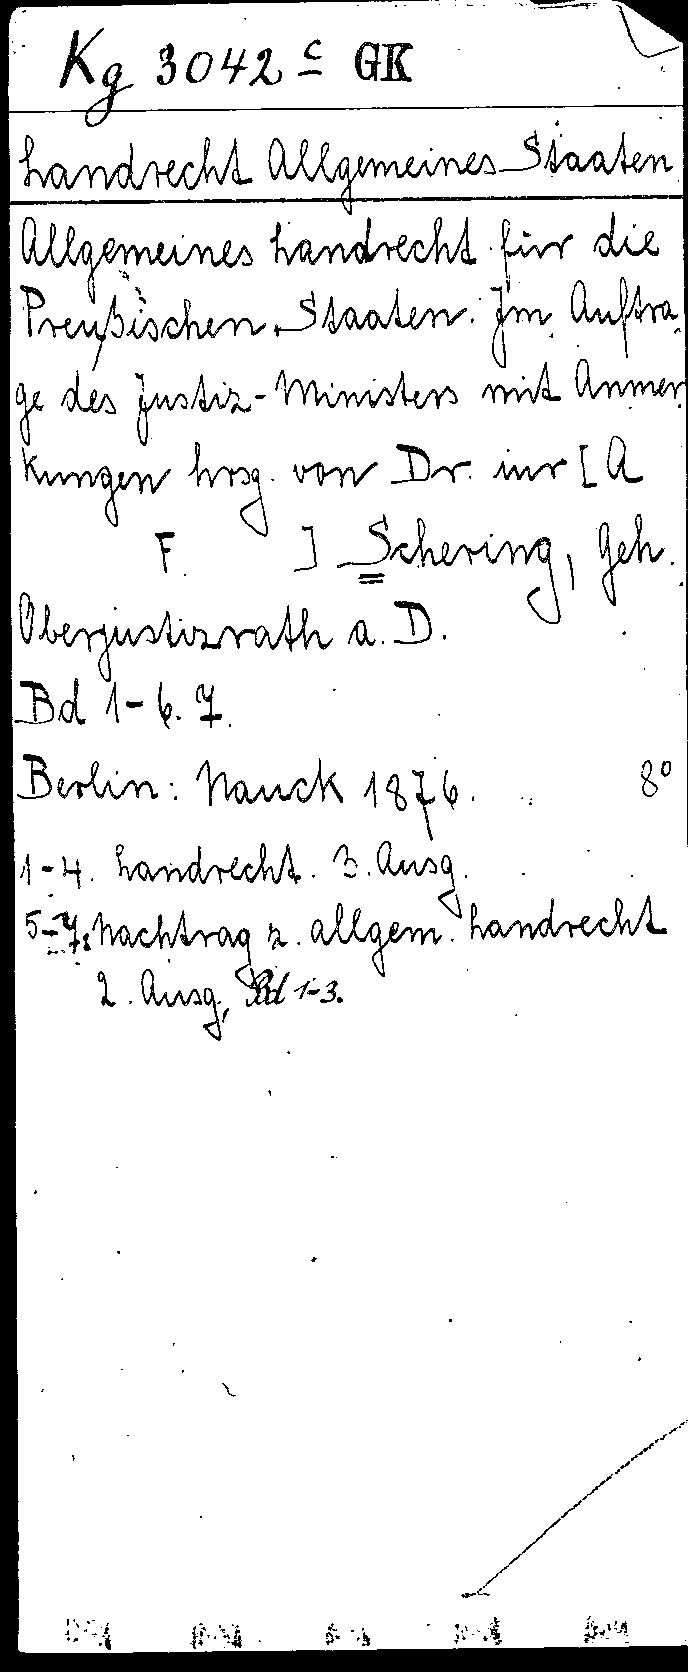 Kg 3042 c GK
Landrecht Allgemeines Staaten
Allgemeines Landrecht für die
Preußischen Staaten. Im Auftra,
ge des Justiz-Ministers mit Anmer
kungen hrsg. von Dr. iur [A
F ] Schering, Geh.
Oberjustizrath a. D.
Bd 1-6. 7.
Berlin: Nauck 1876. 8°
1-4. Landrecht. 3. Ausg.
5-7. Nachtrag z. allgem. Landrecht
2. Ausg, Bd 1-3.